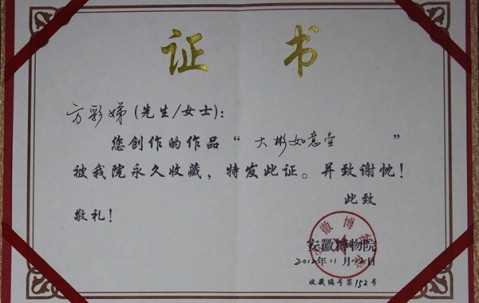 证书
方彩娣(先生/女士):
您创作的作品“大彬如意壶”
被我院永久收藏,特发此证。并致谢忱!
此致
敬礼!
安徽博物院
2012年11月12日
收藏编号第152号